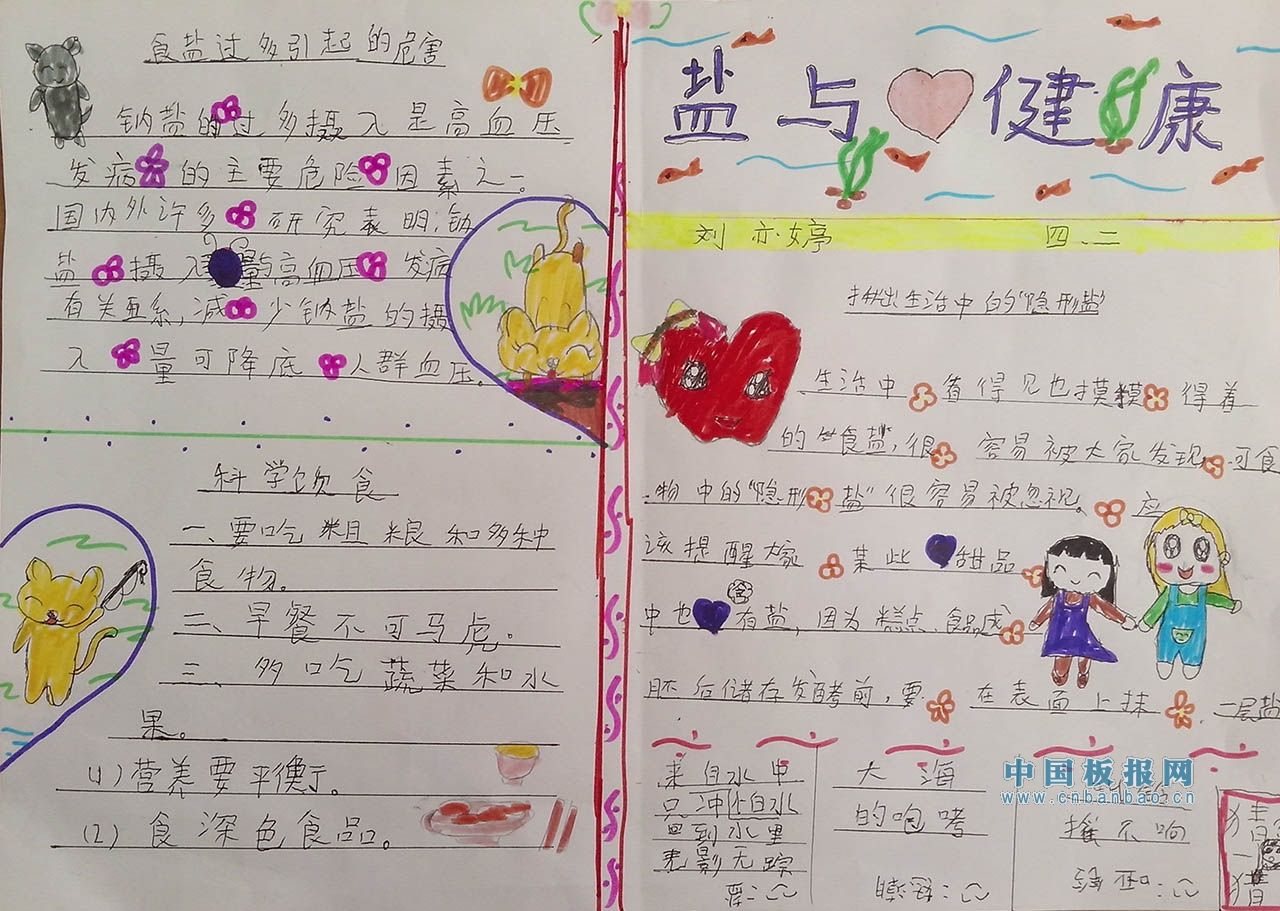 食盐过多引起的危害
钠盐的过多摄入是高血压
发病的主要危险因素之一。
国内外许多研究表明,钠
盐摄入量与高血压发病
有关系,减少钠盐的摄
入量可降底人群血压。
科学饮食
一、要吃粗粮和多种
食物。
二、早餐不可马虎。
三、多吃蔬菜和水
果。
(1)营养要平衡。
(2)食深色食品。
盐与健康
刘亦婷 四、二
揪出生活中的“隐形盐”
生活中看得见也摸得着
的食盐,很容易被大家发现,可食
物中的“隐形盐”很容易被忽视。应
该提醒大家某些甜品
中也含有盐,因为糕点、食品成
胚后储存发酵前,要在表面上抹一层盐
来自水中
只冲怕白水
回到水里
无影无踪
大海
的咆哮
摧不响
猜
一
猜
中国板报网
www.cnbanbao.cn